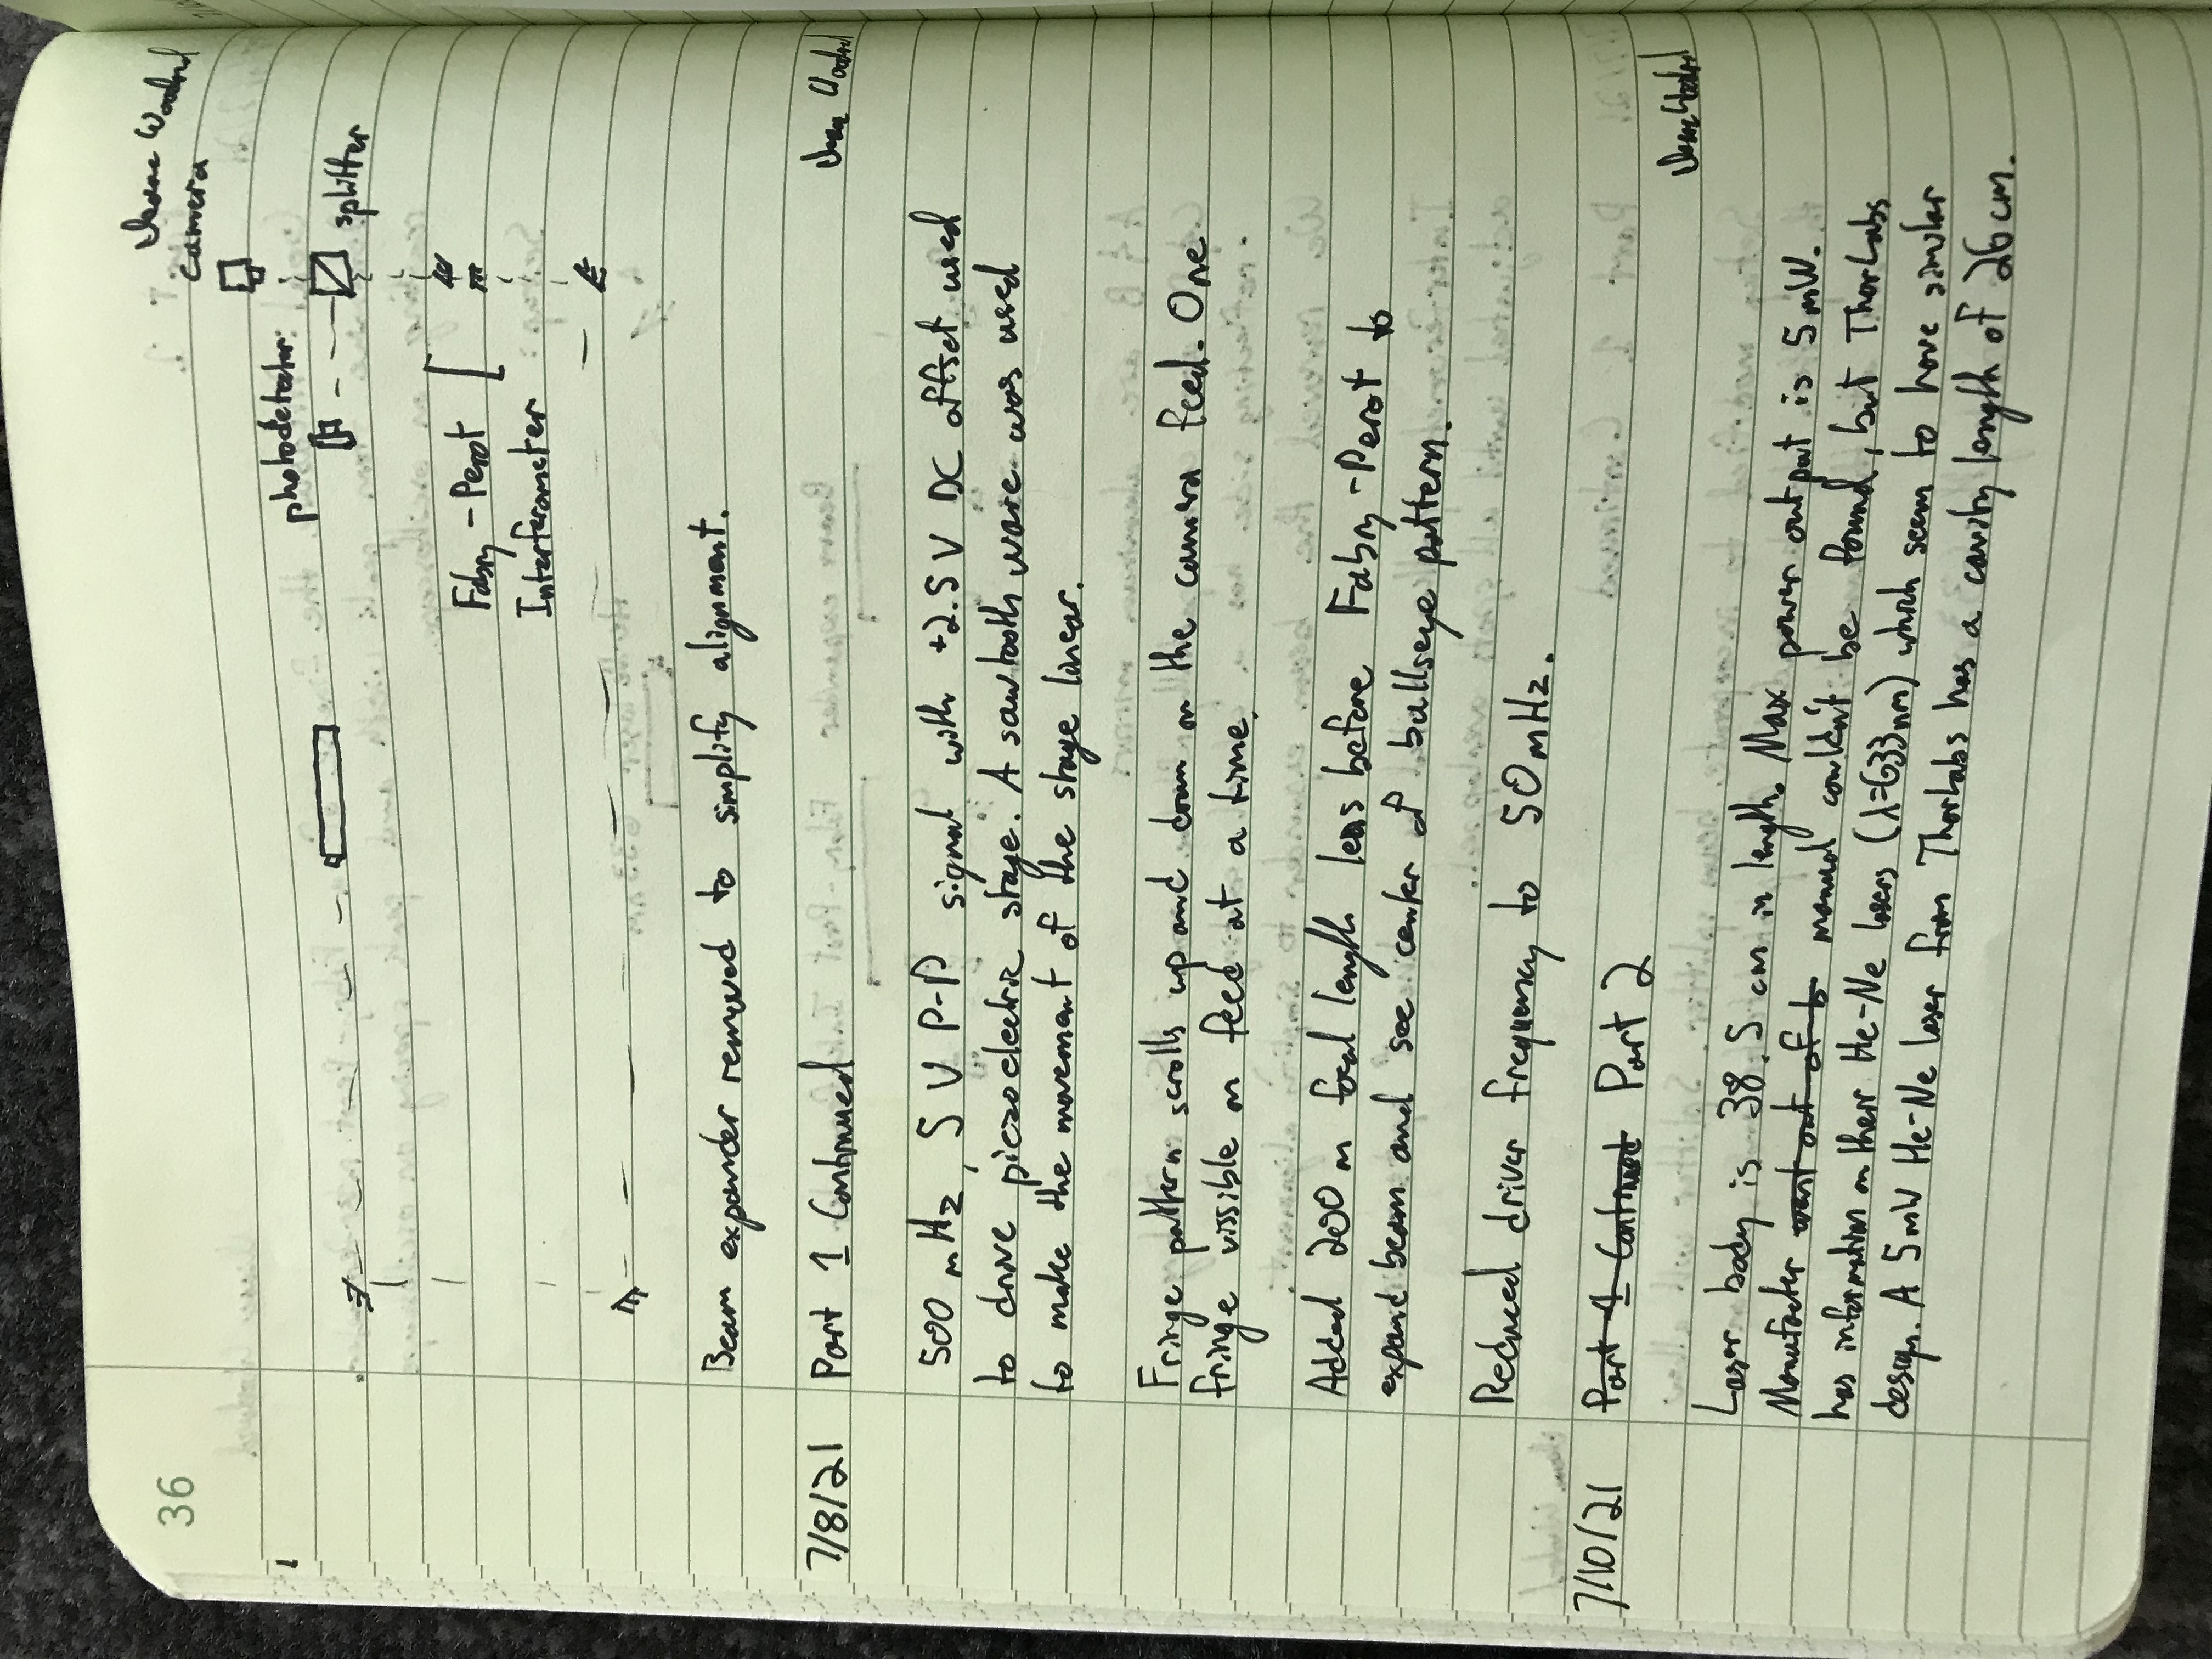 36
camera
photodetector
splitter
Fabry-Perot
Interferometer
Beam expander removed to simplify alignment.
7/8/21 Part 1 Continued
500 mHz, 5 V P-P signal with +2.5 V DC offset used
to drive piezoelectric stage. A sawtooth wave was used
to make the movement of the stage linear.
Fringe pattern scrolls up and down on the camera feed. One
fringe vissible on feed at a time.
Added 200 m focal length lens before Fabry-Perot to
expand beam and see center of bullseye pattern.
Reduced driver frequency to 50 mHz.
7/10/21 Part 1 Continued Part 2
Laser body is 38.5 cm in length. Max power output is 5 mW.
Manufacter went out of b manual couldn't be found, but ThorLabs
has information on their He-Ne lasers (λ=633nm) which seem to have similar
design. A 5mW He-Ne laser from ThorLabs has a cavity length of 26 cm.